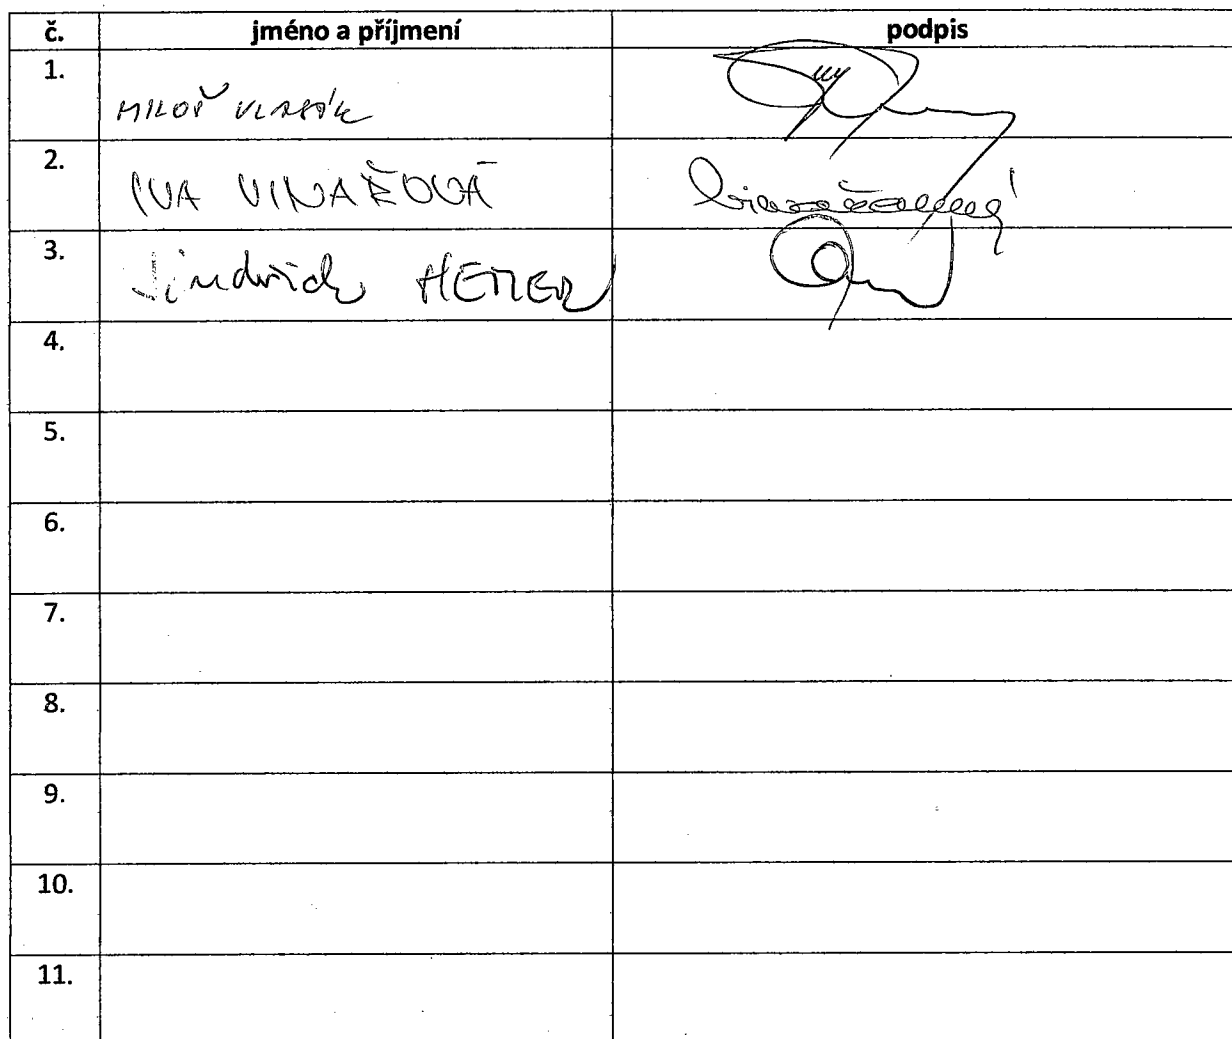 č. jméno a příjmení podpis
1. MILOŠ VLASÁK
2. IVA VINAŘOVÁ Vinařová
3. Jindřich HETLER
4.
5.
6.
7.
8.
9.
10.
11.